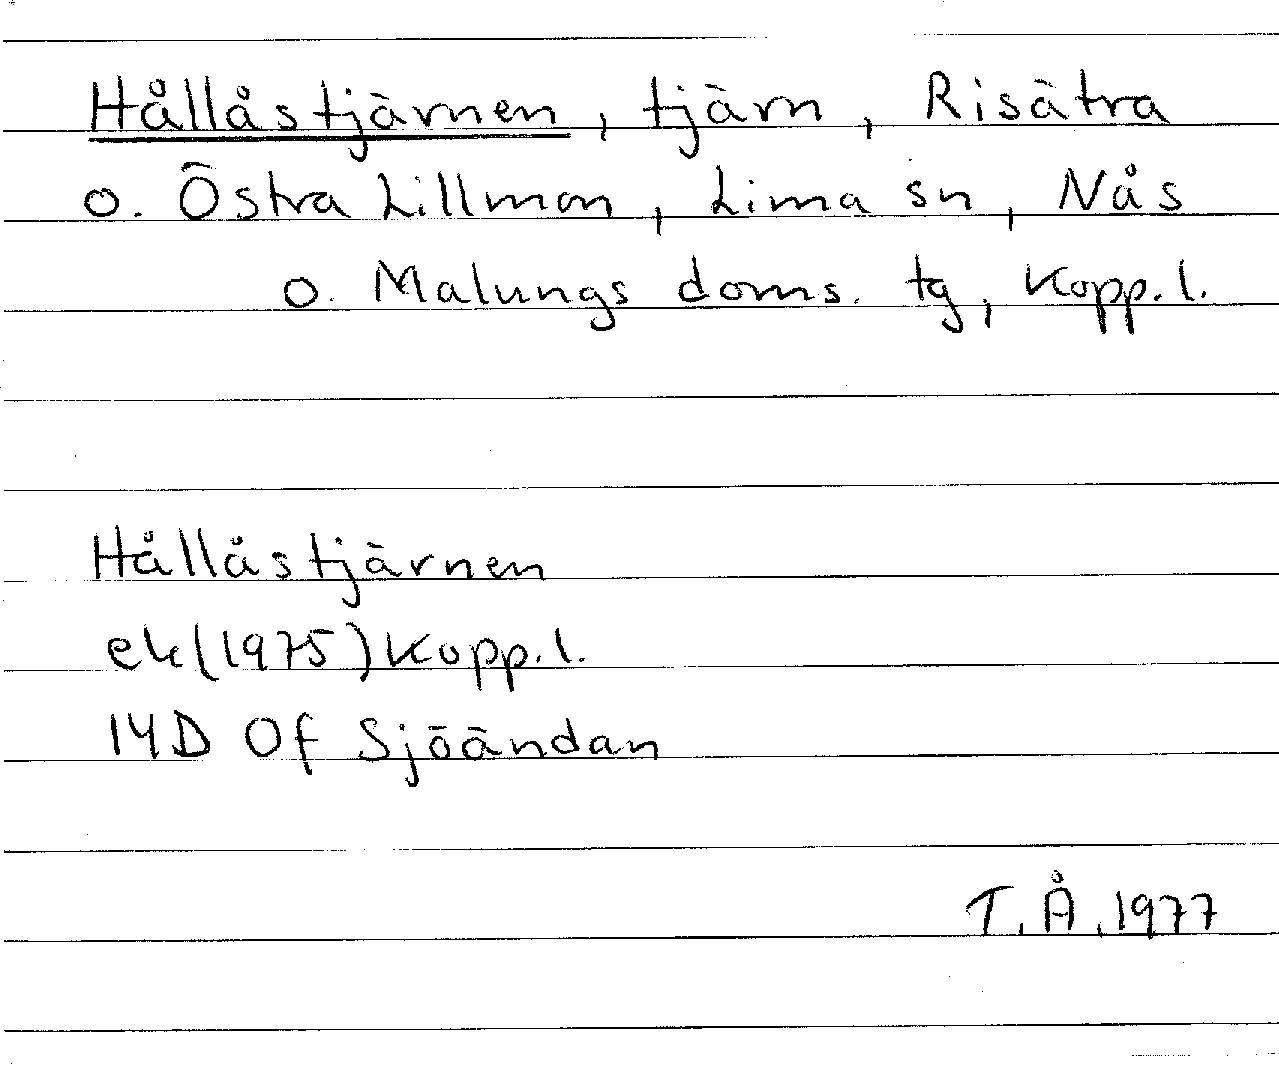 Hållåstjärnen, tjärn, Risätra
o. Östra Lillmon, Lima sn, Nås
o. Malungs doms. tg, Kopp. l.
Hållåstjärnen
ek (1975) Kopp. l.
14D 0f Sjöändan
T. Å. 1977